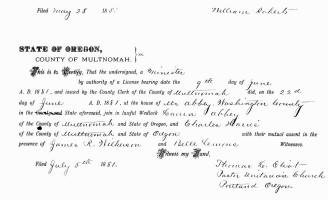 Filed May 28 185 William Roberts
STATE OF OREGON,
COUNTY OF MULTNOMAH. ss
This is to Certify, That the undersigned, a Minister
by authority of a License bearing date the 9th day of June
A. D. 1881, and issued by the County Clerk of the County of Multnomah did, on the 22d
day of June A. D. 1881, at the house of Mr Abbey, Washington County
in the State aforesaid, join in lawful Wedlock Laura Abbey
of the County of Multnomah and State of Oregon, and Charles Harris
of the County of Multnomah and State of Oregon with their mutual assent in the
presence of James R. Wilkerson and Belle Witnesses.
Witness my Hand,
Filed July 5th 1881. Thomas L. Eliot
Pastor Unitarian Church
Portland Oregon